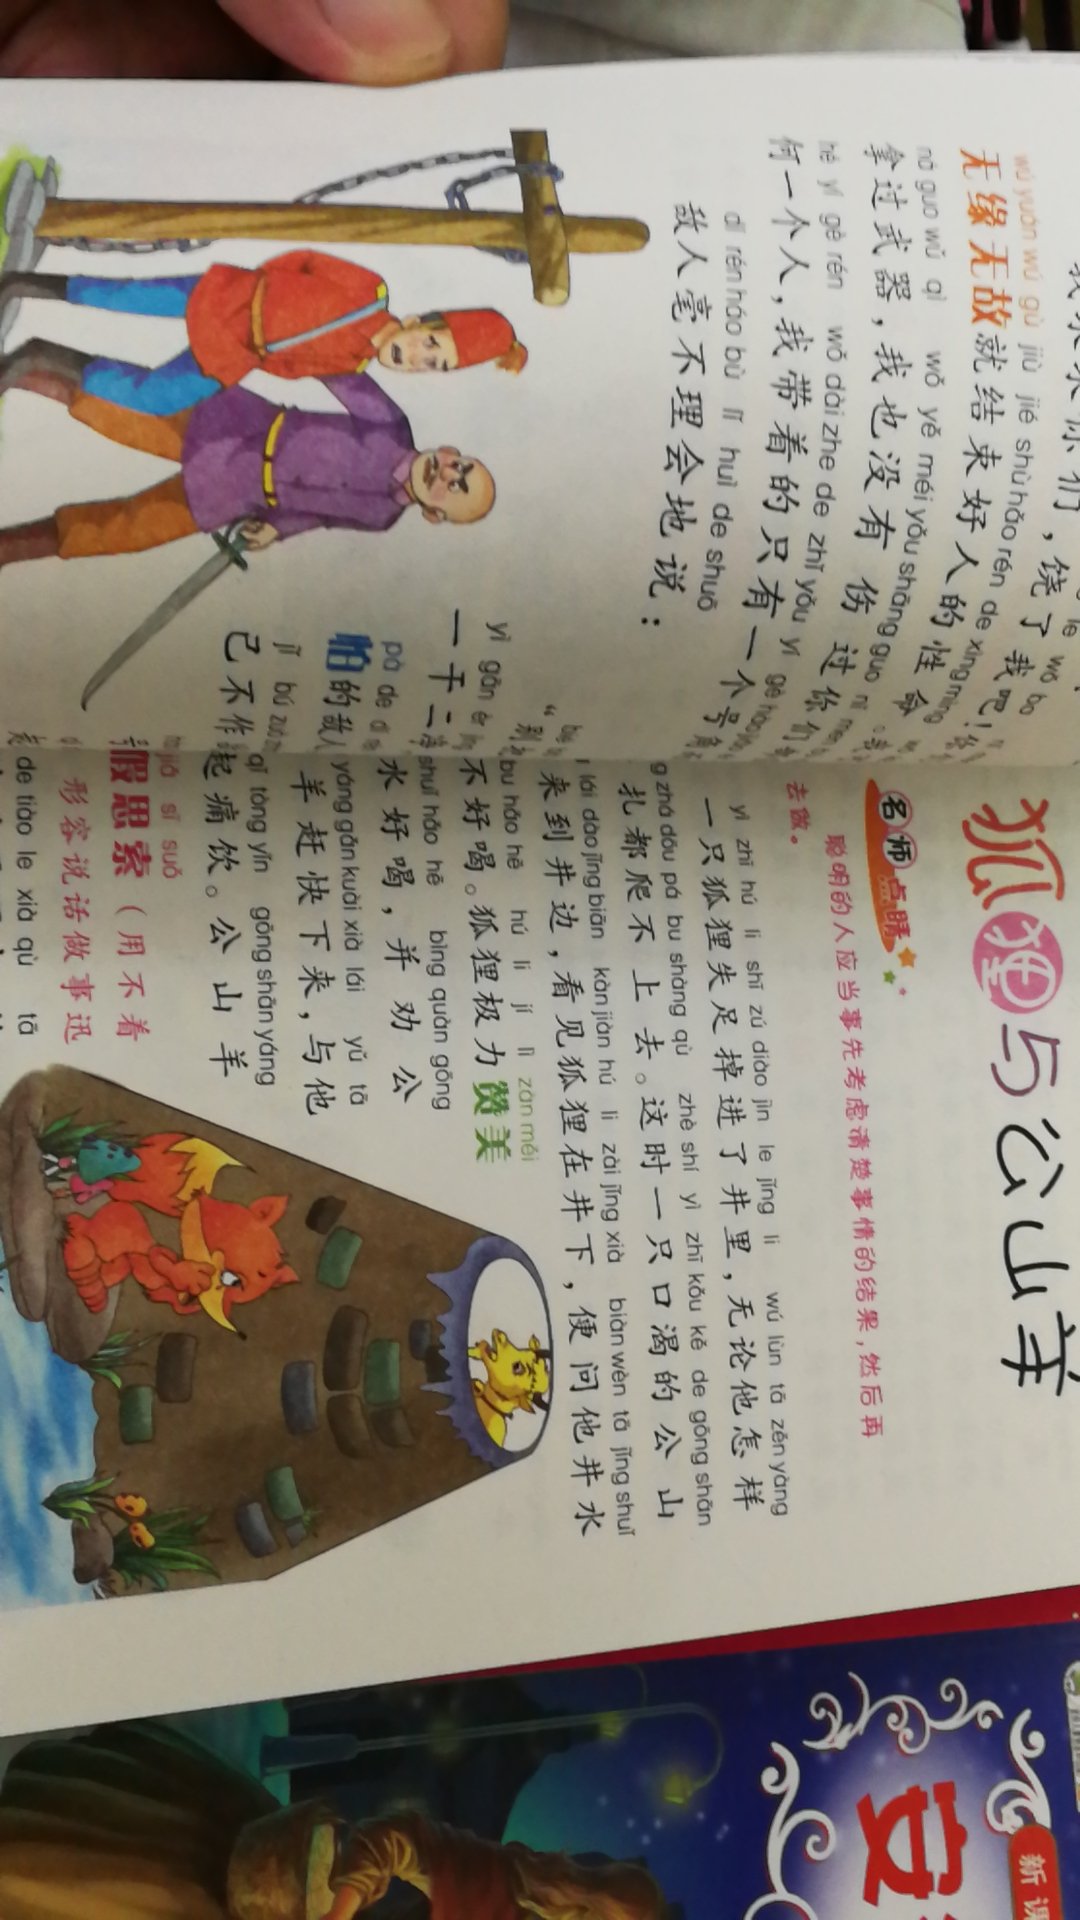 们，饶了我吧！
wú yuán wú gù jiù jié shù hǎo rén de xìng mìng
无缘无故就结束好人的性命
ná guo wǔ qì wǒ yě méi yǒu shāng guo nǐ men
拿过武器，我也没有伤过你们
hé yí gè rén wǒ dài zhe de zhǐ yǒu yí gè hào
何一个人，我带着的只有一个号
dí rén háo bù lǐ huì de shuō
敌人毫不理会地说：
“别
yì gān èr
一干二
pà de dí
怕的敌人
jǐ bú zuò
己不作
狐狸与公山羊
名师点睛
聪明的人应当事先考虑清楚事情的结果，然后再
去做。
yì zhī hú li shī zú diào jìn le jǐng li wú lùn tā zěn yàng
一只狐狸失足掉进了井里，无论他怎样
zhá dōu pá bu shàng qù zhè shí yì zhī kǒu kě de gōng shān
扎都爬不上去。这时一只口渴的公山
lái dào jǐng biān kàn jiàn hú li zài jǐng xià biàn wèn tā jǐng shuǐ
来到井边，看见狐狸在井下，便问他井水
bu hǎo hē hú li jí lì zàn měi
不好喝。狐狸极力赞美
shuǐ hǎo hē bìng quàn gōng
水好喝，并劝公
yáng gǎn kuài xià lái yǔ tā
羊赶快下来，与他
qǐ tòng yǐn gōng shān yáng
起痛饮。公山羊
jiǎ sī suǒ
假思索（用不着
形容说话做事迅
de tiào le xià qù tā
新课